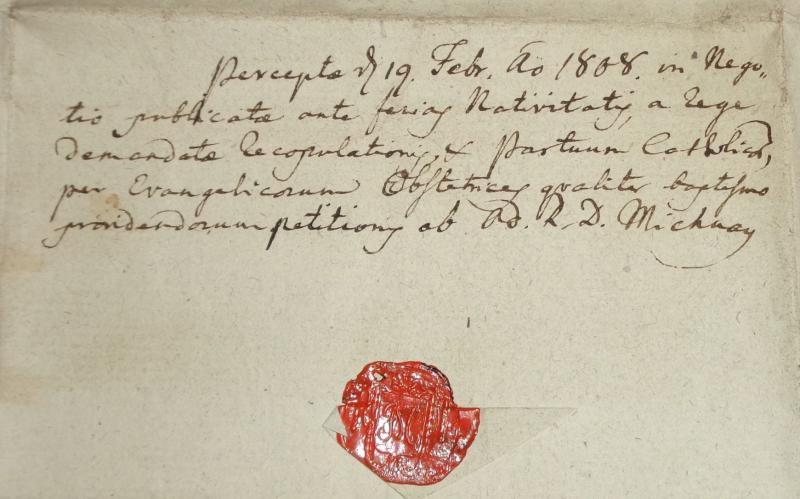 Perceptae d 19. Febr. Ao 1808. in Nego„
tio publicatae ante ferias Nativitatis, a Rege
demandatae Recopulationis, & Partuum Catholicor,
per Evangelicorum Obstetrices qualiter baptismo
providendorum petitionis ab Ad. R. D. Michnay